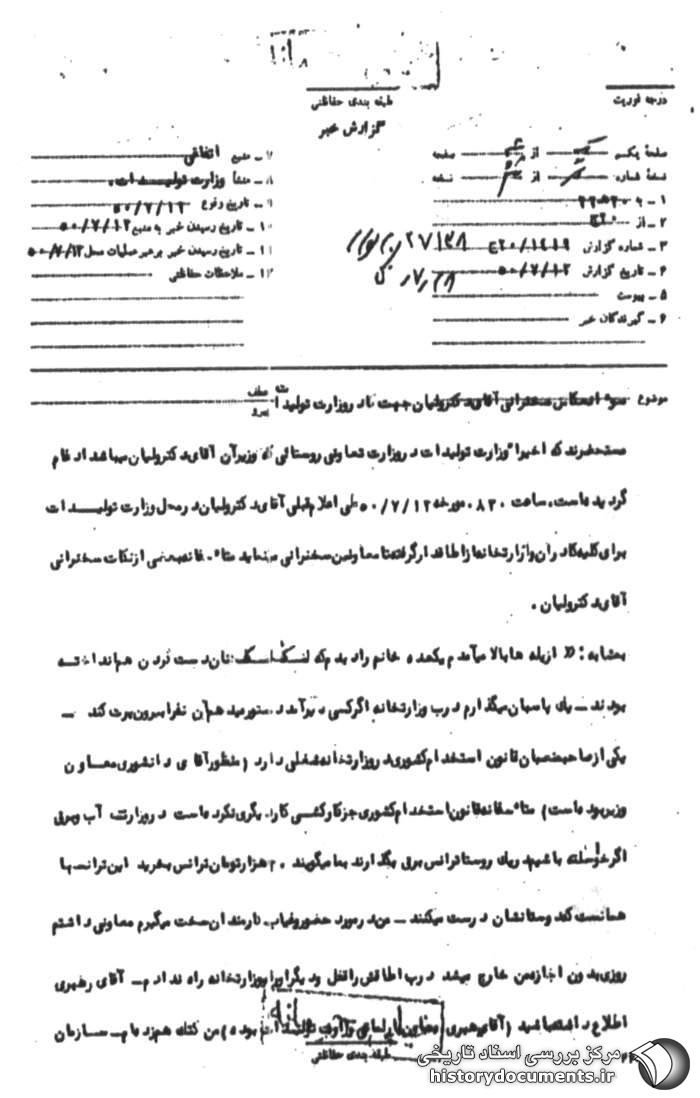 درجه فوریت
طبقه بندی حفاظتی
گزارش خبر
صفحه یکم از صفحه
نسخه شماره از نسخه
۱ - به
۲ - از ۲۰ج
۳ - شماره گزارش ۲۰/۱۴۱۹ج
۴ - تاریخ گزارش ۵۰/۷/۱۲
۵ - پیوست
۶ - گیرندگان خبر
۷ - منبع اتفاقی
۸ - منشأ وزارت تولیدات.
۹ - تاریخ وقوع ۵۰/۷/۱۲
۱۰ - تاریخ رسیدن خبر به منبع ۵۰/۷/۱۲
۱۱ - تاریخ رسیدن خبر برهبر عملیات محل ۵۰/۷/۱۲
۱۲ - ملاحظات حفاظتی
۲۷۱۳۸
موضوع سخنرانی آقای دکترولیان جهت در وزارت تولیدا
مستحضرند که اخیرا وزارت تولیدات در وزارت تعاونی روستائی که وزیر آن آقای دکترولیان میباشد ادغام
گردیده است. ساعت ۰۸۳۰ مورخه ۵۰/۷/۱۲ طی اعلام قبلی آقای دکترولیان در محل وزارت تولیدات
برای کلیه کادر آن وزارتخانه از اطاقدار گرفته تا معاونین سخنرانی مینماید متأسفانه بعضی از نکات سخنرانی
آقای دکترولیان.
بمثابه: « از پله ها بالا میآمدم یکعده خانم را دیدم که دست گردن هم انداخته
بودند - یک پاسبان میگذارم درب وزارتخانه اگر کسی دیر آمد دستور میدهم آن نفر را بیرون پرت کند -
یکی از صاحبمنصبان قانون استخدام کشوری در وزارتخانه شغلی دارد (منظور آقای دانشوری معاون
وزیر بوده است) متأسفانه قانون استخدام کشوری جز کارکشی کار دیگری نکرده است در وزارت آب و برق
اگر خواسته باشیم در یک روستا ترانس برق بگذارند بما میگویند هزار تومان ترانس بخرید این ترانس را
همانست که دوستانشان درست میکنند - من در مورد حضور و غیاب کارمندان سخت میگیرم معاونی داشتم
روزی بدون اجازه من خارج میشد درب اطاقش را قفل و دیگر او را بوزارتخانه راه ندادم - آقای رهبری
اطلاع داشته باشید (آقای رهبری وزارت تولیدات بوده) من کتک هم زده ام - سازمان
طبقه بندی حفاظتی
مرکز بررسی اسناد تاریخی
historydocuments.ir